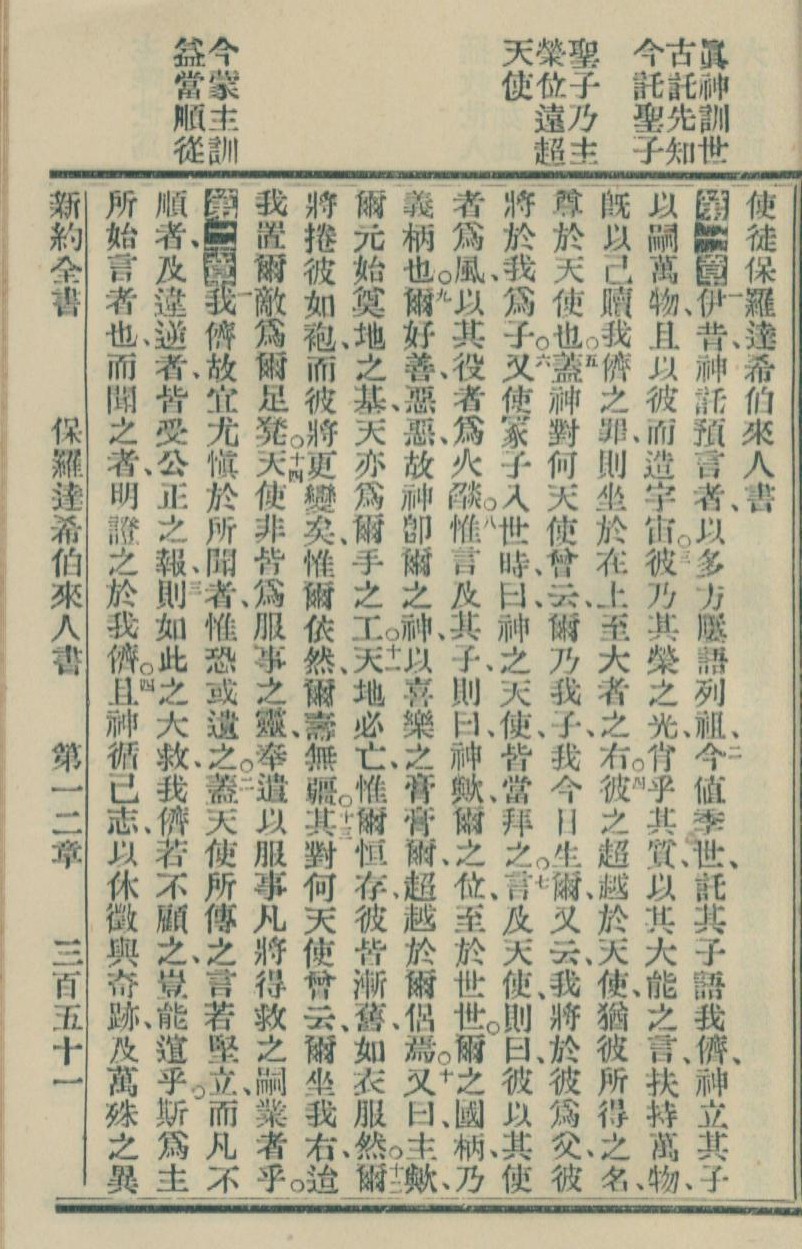 眞神訓世
古託先知
今託聖子
聖子乃主
榮位遠超
天使
今蒙主訓
益當順從
使徒保羅達希伯來人書
第一章一伊昔、神託預言者、以多方屢語列祖、二今値季世、託其子語我儕、神立其子
以嗣萬物、且以彼而造宇宙。三彼乃其榮之光、肖乎其質、以其大能之言、扶持萬物、
旣以己贖我儕之罪、則坐於在上至大者之右。四彼之超越於天使、猶彼所得之名、
尊於天使也。五蓋神對何天使曾云、爾乃我子、我今日生爾、又云、我將於彼爲父、彼
將於我爲子。六又使冢子入世時、曰、神之天使、皆當拜之。七言及天使、則曰、彼以其使
者爲風、以其役者爲火燄。八惟言及其子、則曰、神歟、爾之位、至於世世。爾之國柄、乃
義柄也。九爾好善、惡惡、故神卽爾之神、以喜樂之膏膏爾、超越於爾侶焉。十又曰、主歟、
爾元始奠地之基、天亦爲爾手之工。十一天地必亡、惟爾恒存、彼皆漸舊、如衣服然。十二爾
將捲彼如袍、而彼將更變矣、惟爾依然、爾壽無疆。十三其對何天使曾云、爾坐我右、迨
我置爾敵爲爾足凳。十四天使非皆爲服事之靈、奉遣以服事凡將得救之嗣業者乎。
第二章一我儕故宜尤愼於所聞者、惟恐或遺之。二蓋天使所傳之言若堅立、而凡不
順者、及違逆者、皆受公正之報、三則如此之大救、我儕若不顧之、豈能逭乎。斯爲主
所始言者也、而聞之者、明證之於我儕。四且神循己志、以休徵與奇跡、及萬殊之異
新約全書 保羅達希伯來人書 第一二章 三百五十一